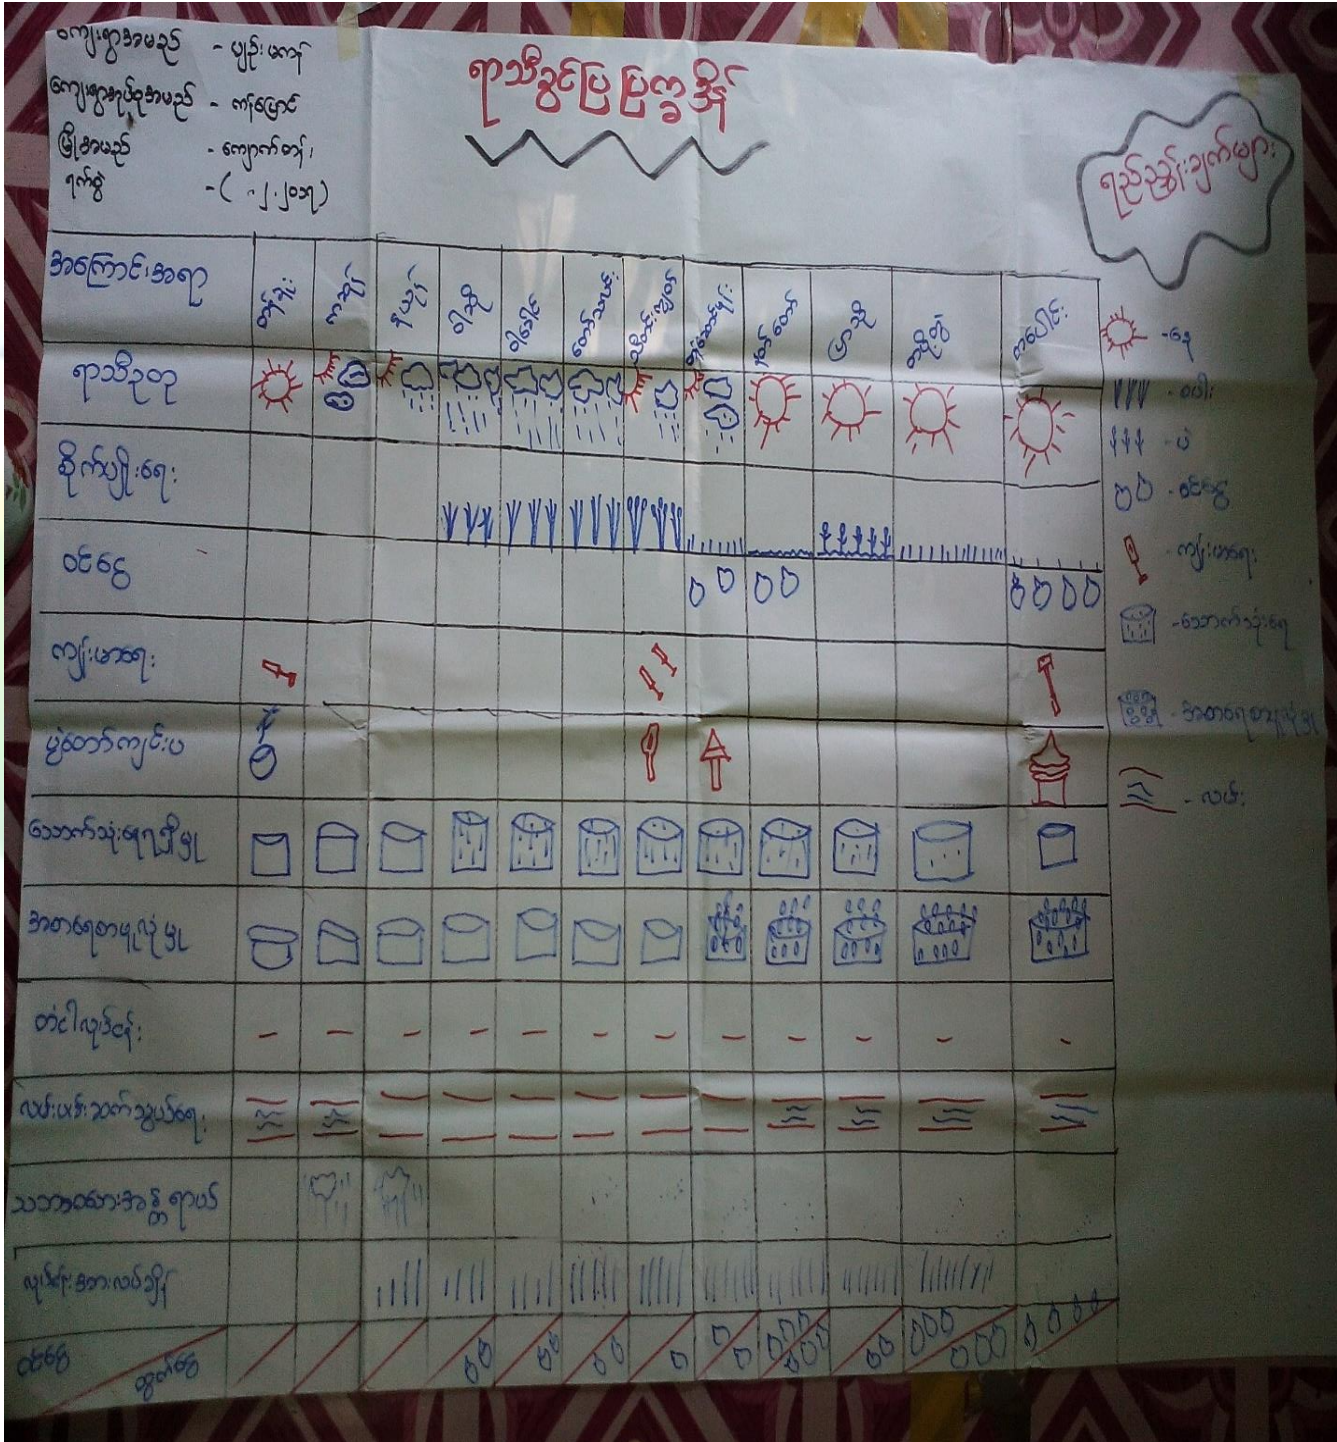 ကျေးရွာအမည် - ပျဉ်းမကန်
ကျေးရွာအုပ်စုအမည် - ကန်ပြောင်
မြို့အမည် - ကျောက်တန်း
ရက်စွဲ
ရာသီခွင်ပြပြက္ခဒိန်
ရည်ညွှန်းချက်များ
အကြောင်းအရာ
တန်ခူး
ကဆုန်
နယုန်
ဝါဆို
ဝါခေါင်
တော်သလင်း
သီတင်းကျွတ်
တန်ဆောင်မုန်း
နတ်တော်
ပြာသို
တပို့တွဲ
တပေါင်း
ရာသီဥတု
စိုက်ပျိုးရေး
ဝင်ငွေ
ကျန်းမာရေး
ပွဲတော်ကျင်းပ
သောက်သုံးရေရရှိမှု
အစာရေစာဖူလုံမှု
တံငါလုပ်ငန်း
လမ်းပန်းဆက်သွယ်ရေး
သဘာဝဘေးအန္တရာယ်
လုပ်ငန်းအားလပ်ချိန်
ဝင်ငွေ
ထွက်ငွေ
-နေ
- စပါး
- ပဲ
- ဝင်ငွေ
- ကျန်းမာရေး
-သောက်သုံးရေ
- အစာရေစာဖူလုံမှု
- လမ်း